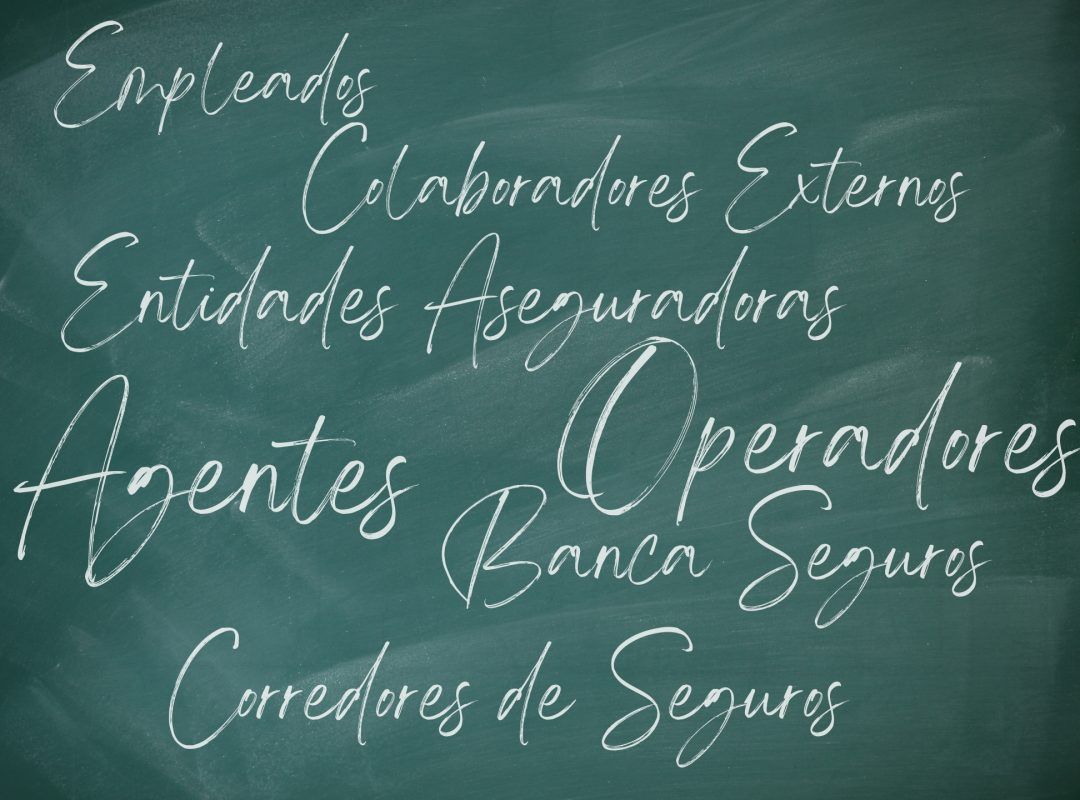 Empleados
Colaboradores Externos
Entidades Aseguradoras
Agentes
Operadores
Banca Seguros
Corredores de Seguros